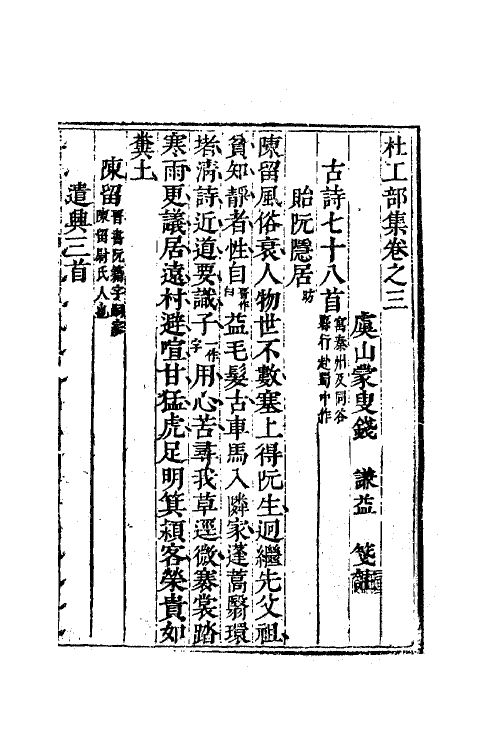 杜工部集卷之三
虞山蒙叟錢 謙益 箋註
古詩七十八首寓秦州及同谷縣行赴蜀中作
貽阮隱居昉
陳留風俗衰人物世不數塞上得阮生迥繼先父祖
貧知靜者性自晉作白益毛髮古車馬入隣家蓬蒿翳環
堵清詩近道要識子一作字用心苦尋我草逕微褰裳踏
寒雨更議居遠村避喧甘猛虎足明箕潁客榮貴如
糞土
陳留晉書阮籍字嗣宗陳留尉氏人也
遣興三首